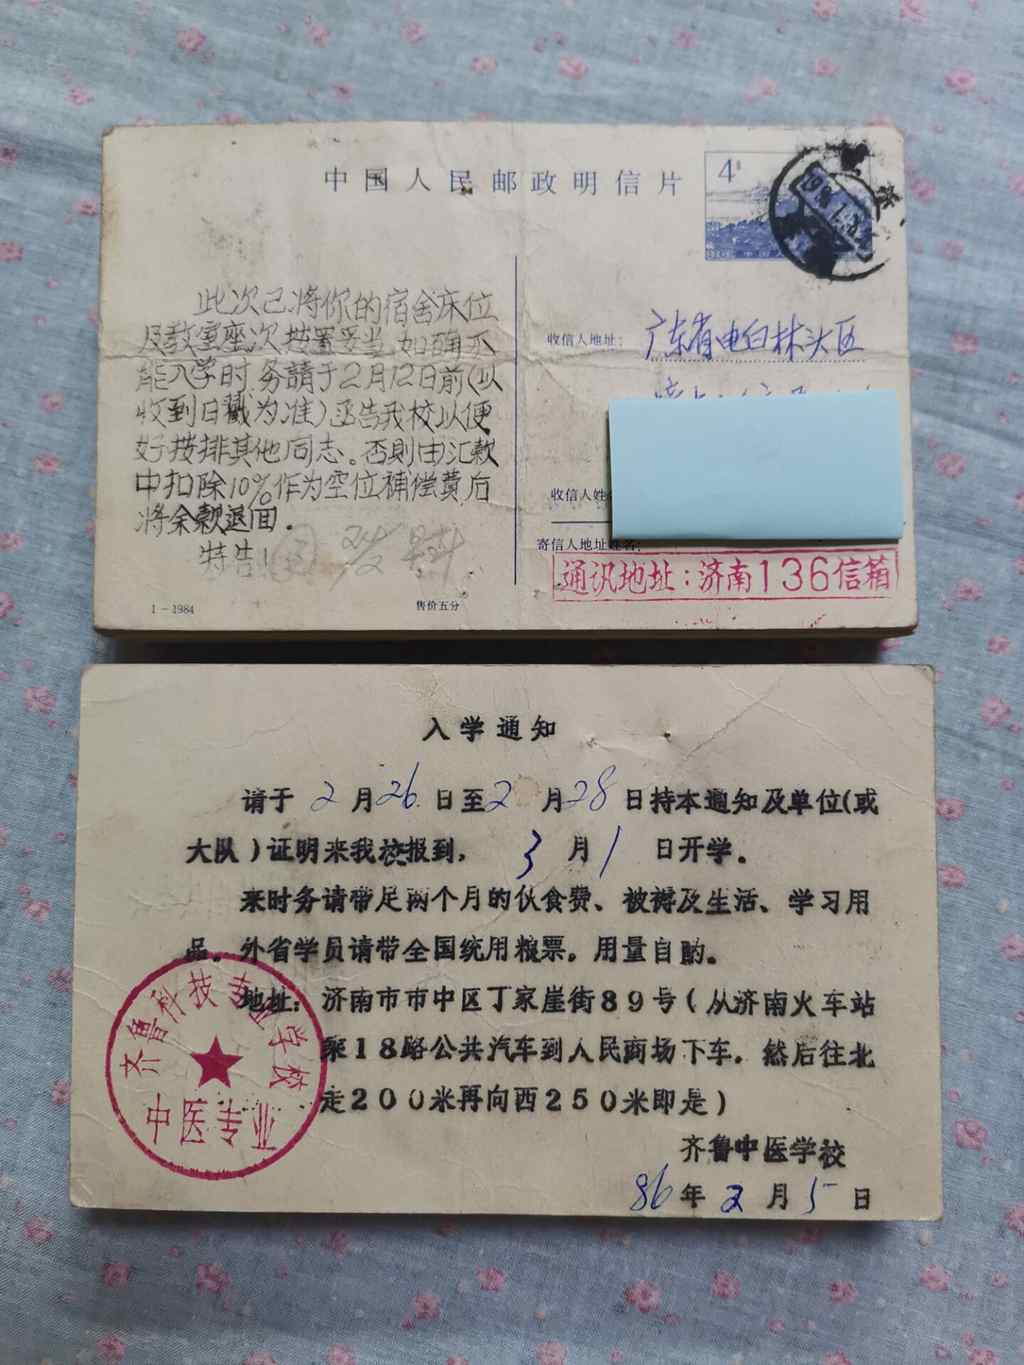 中国人民邮政明信片
4
此次已将你的宿舍床位
及教室座次按置妥当.如确不
能入学时.务請于2月12日前(以
收到日戳为准)函告我校以便
好按排其他同志。否則由汇款
中扣除10%作为空位補偿费后
将余款退回.
特告!
1-1984
售价五分
收信人地址:
广东省电白林头区
收信人姓
寄信人地址姓名:
通讯地址:济南136信箱
入学通知
请于 2 月 26 日至 2 月 28 日持本通知及单位(或
大队)证明来我校报到, 3 月 1 日开学。
来时务请带足两个月的伙食费、被褥及生活、学习用
品。外省学员请带全国统用粮票。用量自酌。
地址:济南市市中区丁家崖街89号(从济南火车站
乘18路公共汽车到人民商场下车。然后往北
走200米再向西250米即是)
齐鲁中医学校
86 年 2 月 5 日
齐鲁科技专业学校
中医专业